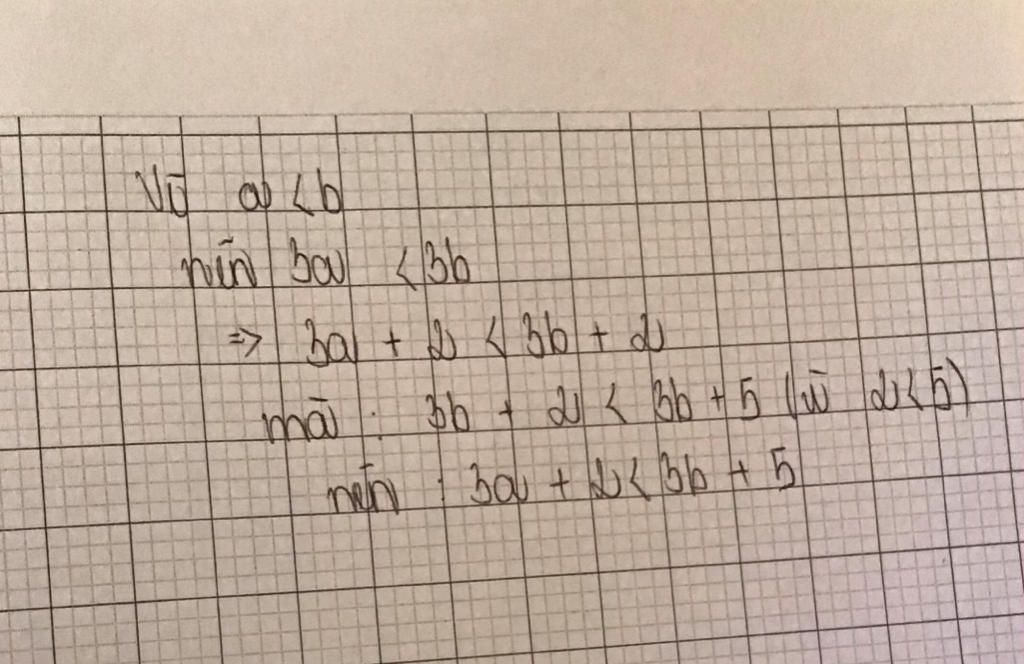 Vì a < b
nên 3a < 3b
=> 3a + 2 < 3b + 2
mà : 3b + 2 < 3b + 5 (vì 2 < 5)
nên : 3a + 2 < 3b + 5